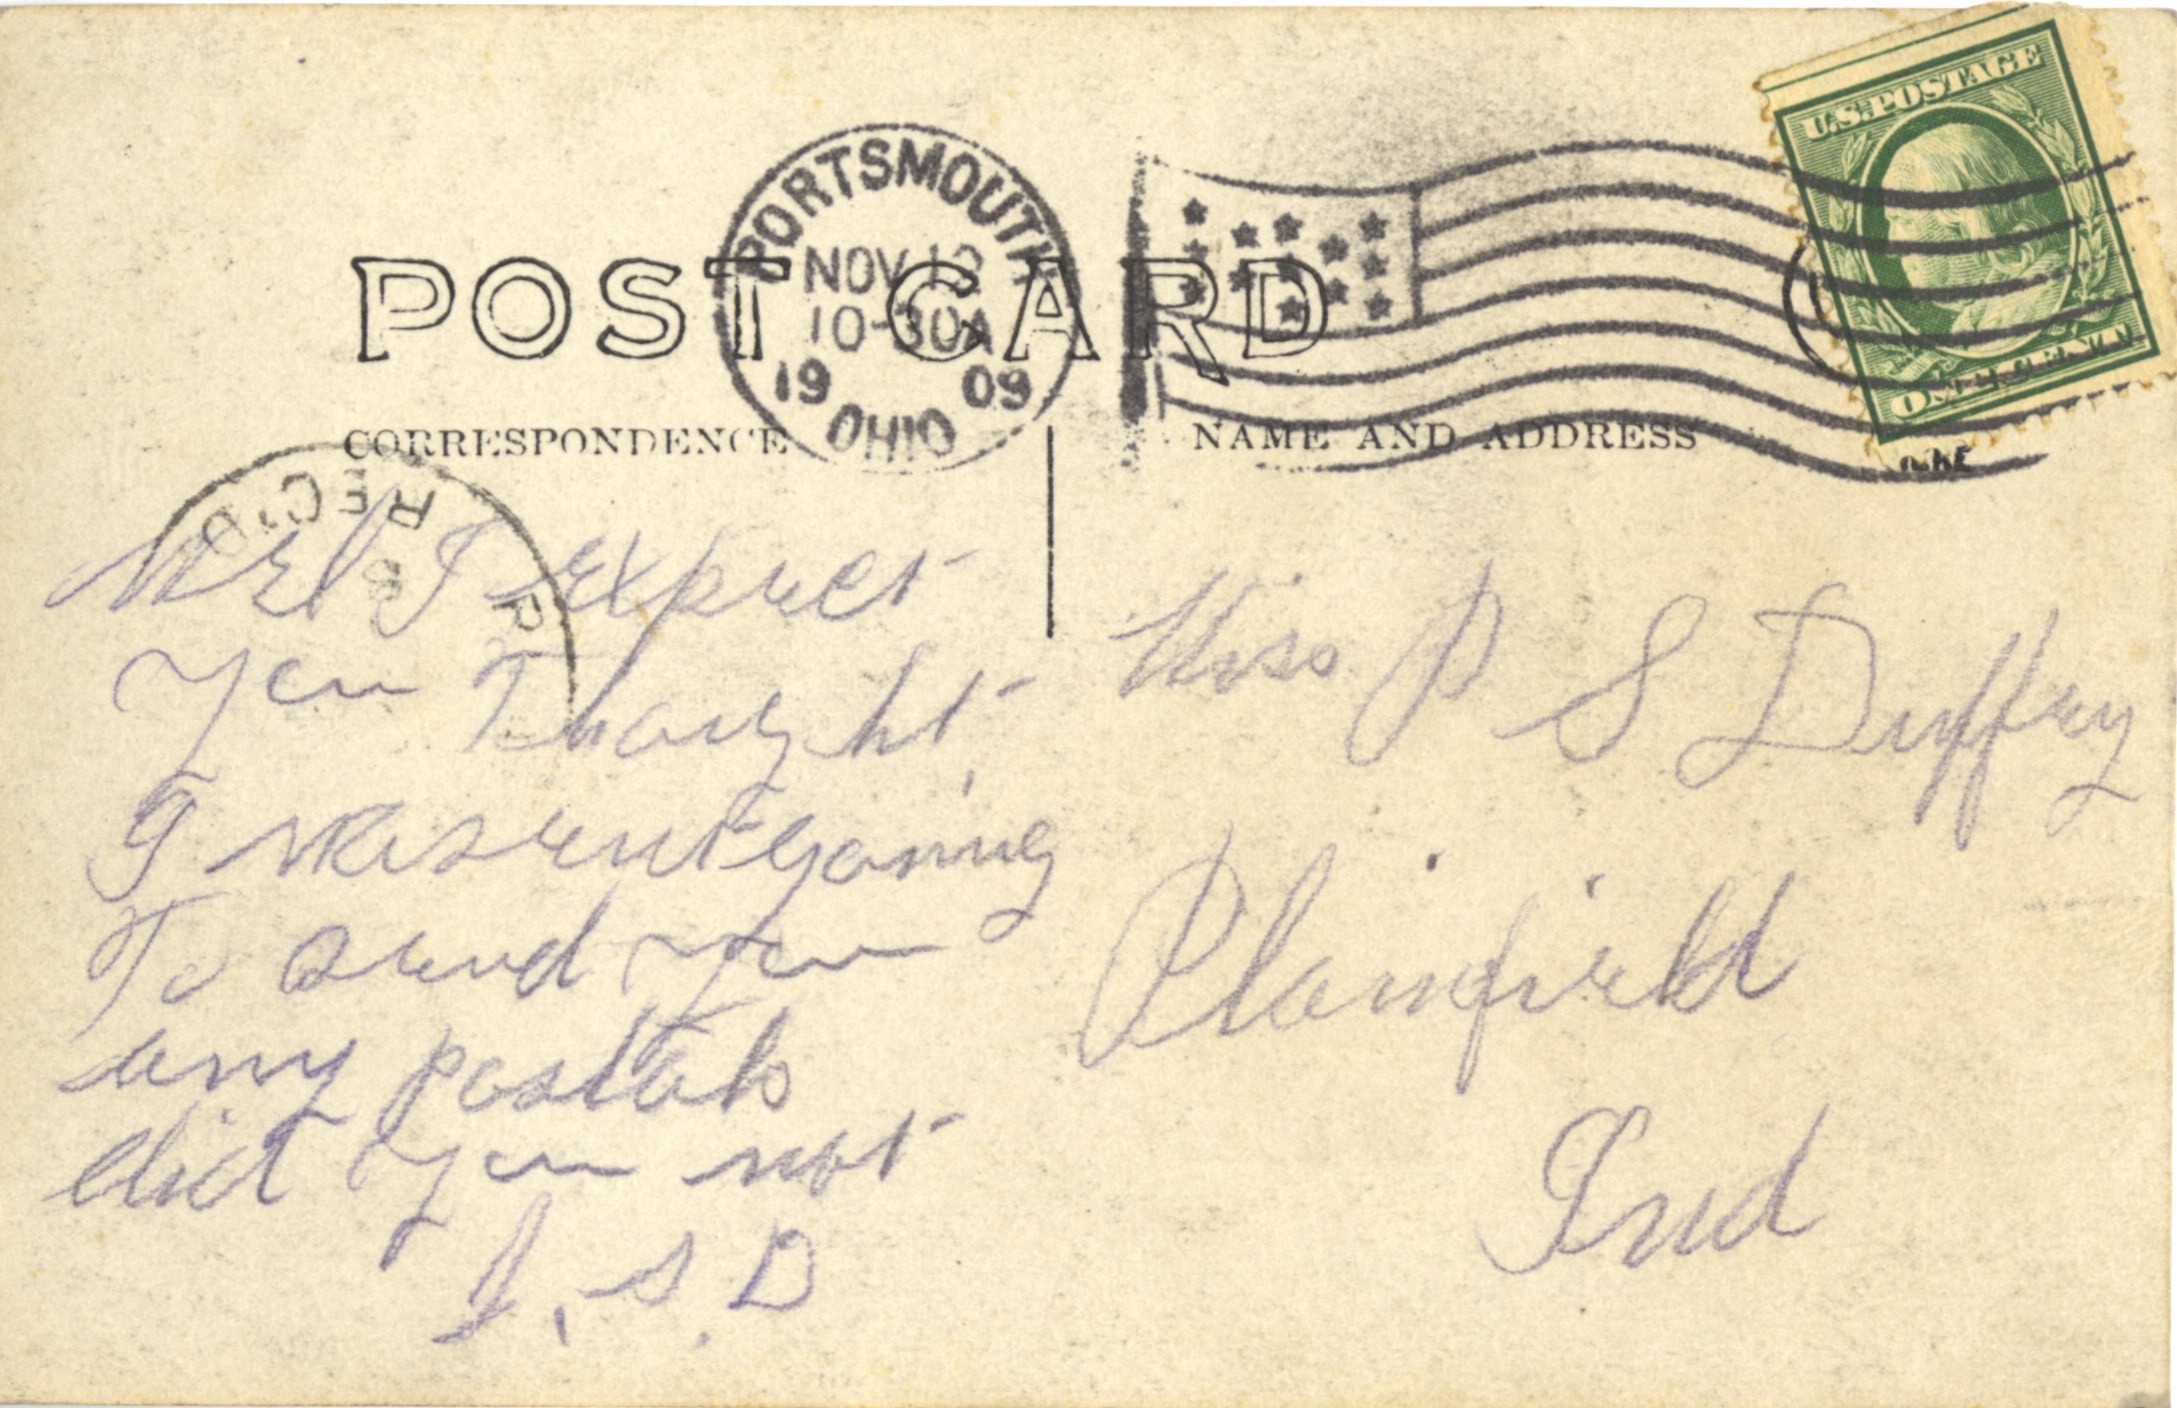 U.S. POSTAGE
PORTSMOUTH
NOV 12
10-30A
1909
OHIO
POST CARD
CORRESPONDENCE
NAME AND ADDRESS
REC'D
Wel I expect
you Thought
I wasent going
To send you
any postals
did you not
S. D
Miss P S Duffey
Plainfield
Ind